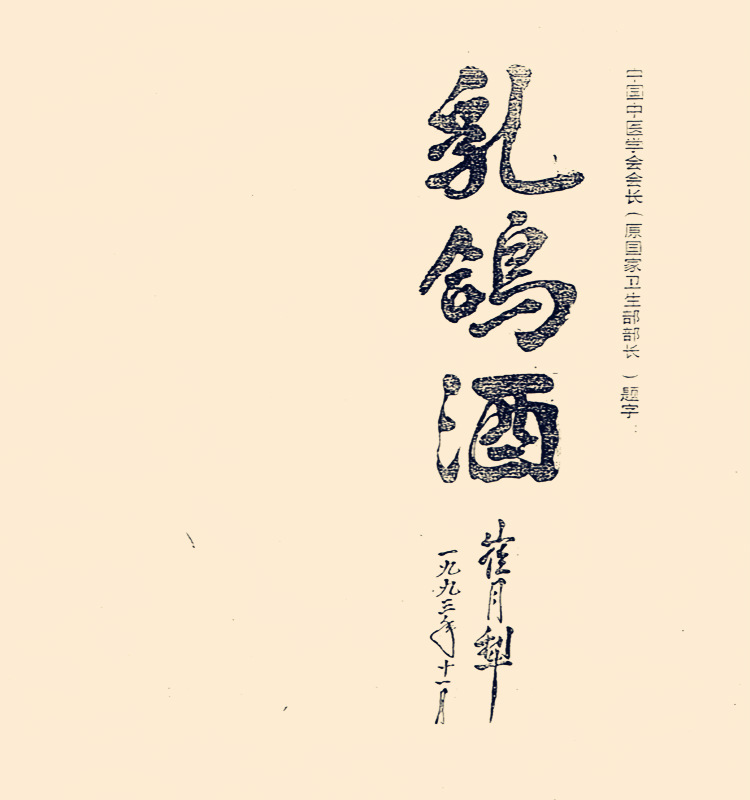 中国中医学会会长(原国家卫生部部长)题字:
乳鸽酒
崔月犁
一九九三年十一月